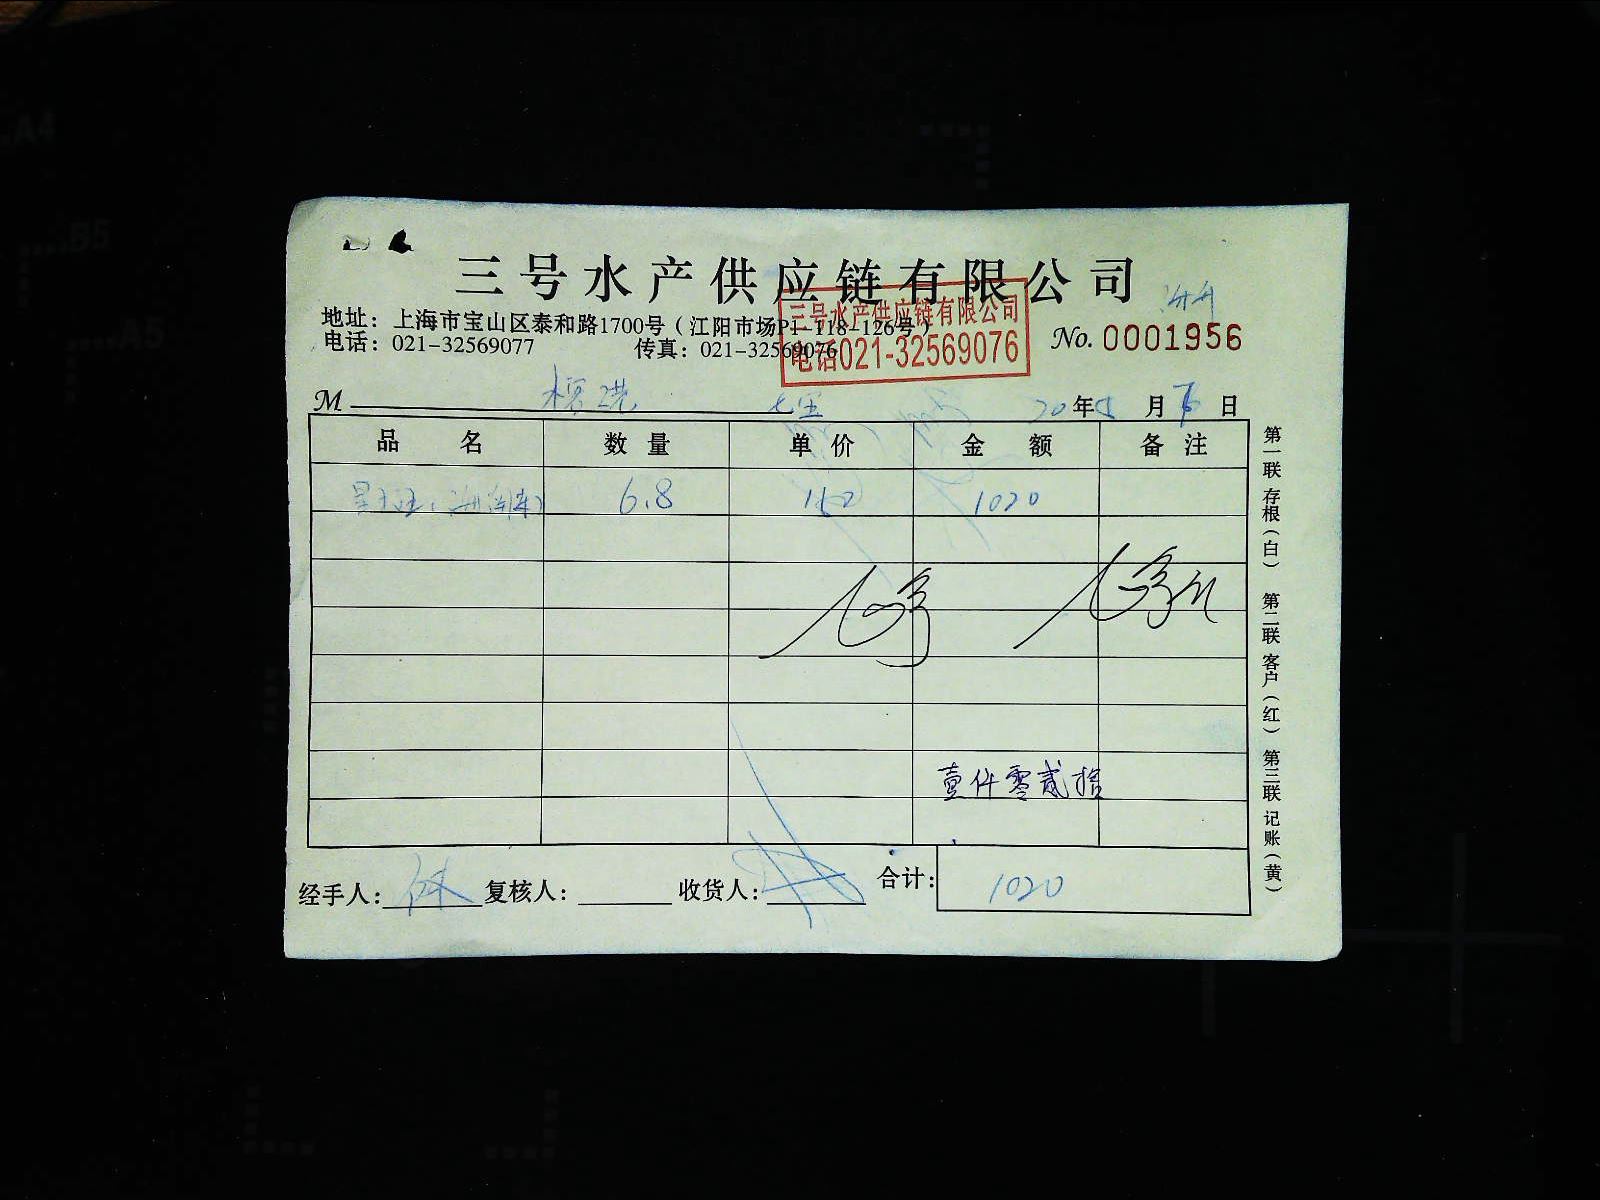 三号水产供应链有限公司
地址：上海市宝山区泰和路1700号（江阳市场P1-118-126号）
电话：021-32569077 传真：021-32569076
三号水产供应链有限公司
电话021-32569076
No. 0001956
M 20年 月 日
品名 数量 单价 金额 备注
6.8 150 1020
壹仟零贰拾
经手人： 复核人： 收货人： 合计： 1020
第一联 存根（白） 第二联 客户（红） 第三联 记账（黄）